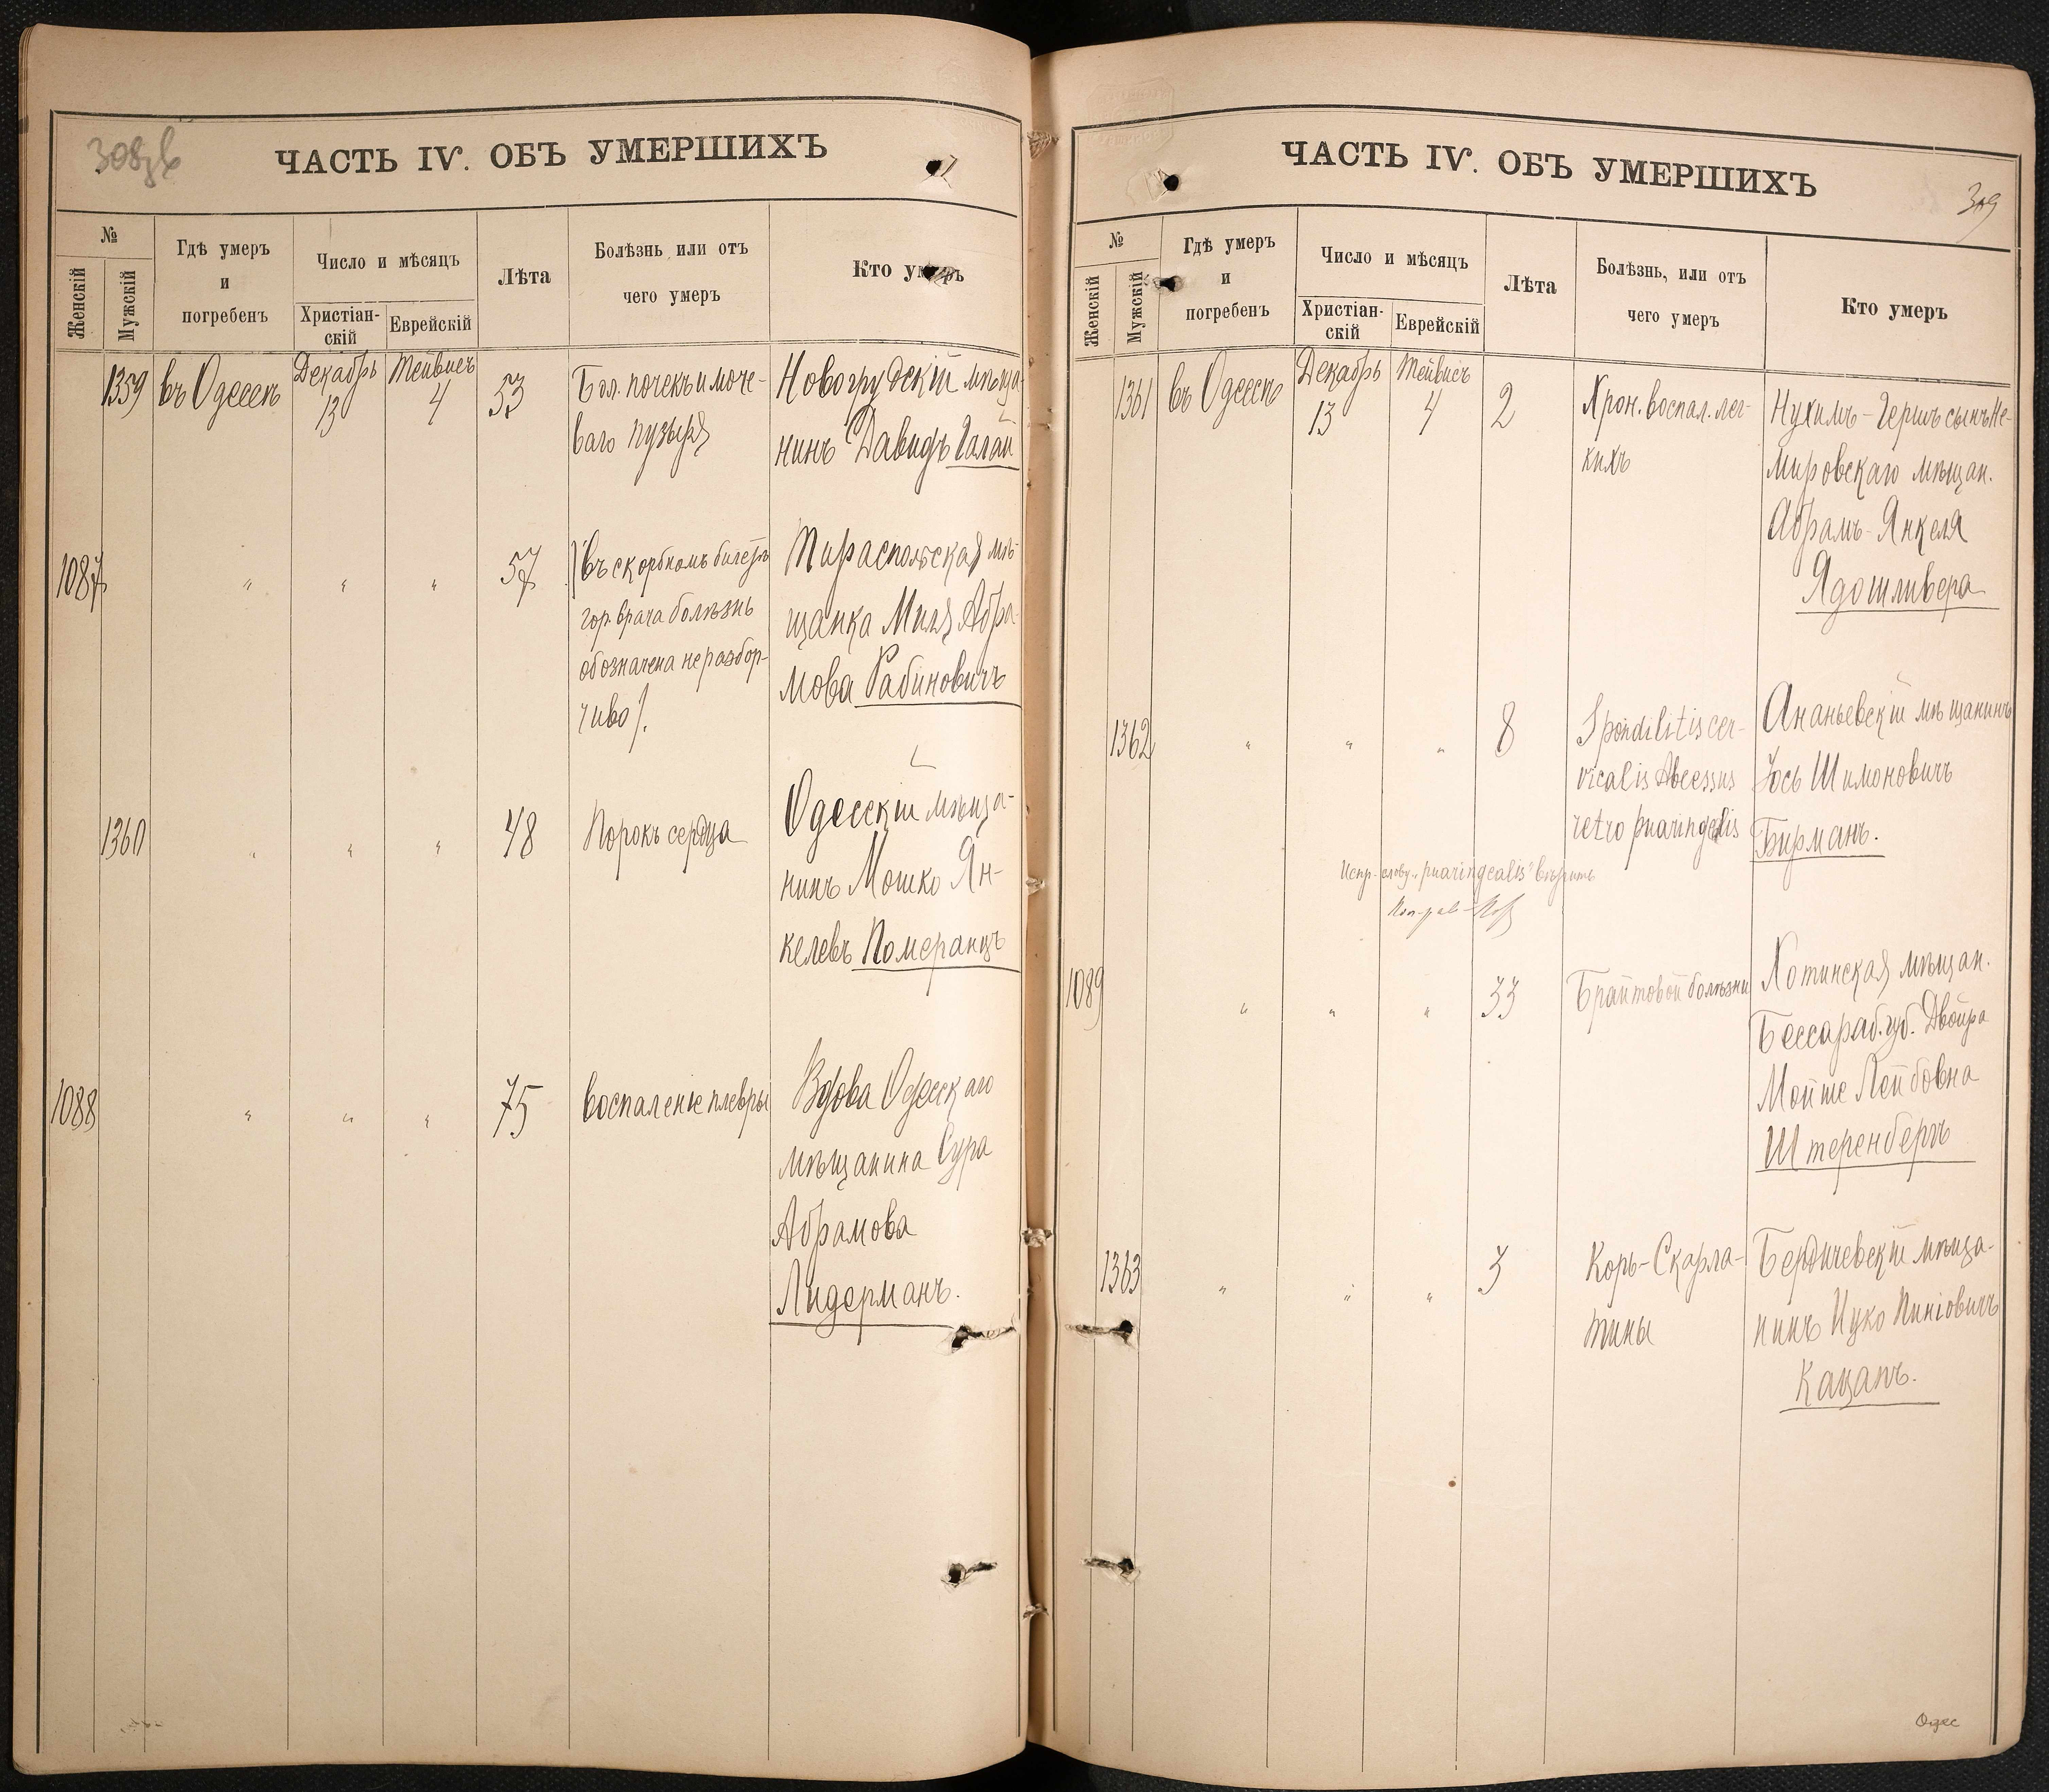 ЧАСТЬ IV. ОБЪ УМЕРШИХЪ
№
Женскій
Мужскій
Гдѣ умеръ
и
погребенъ
Число и мѣсяцъ
Христіан-
скій
Еврейскій
Лѣта
Болѣзнь или отъ
чего умеръ
Кто умеръ
1359 въ Одессѣ Декабрь 13 Тейвисъ 4 53 Бол. почекъ и моче-
ваго пузыря
Новогрудскій мѣща-
нинъ Давидъ Галай
1087 " " " 57 /въ скорбномъ билетѣ
гор. врача болѣзнь
обозначена неразбор-
чиво/.
Тираспольская мѣ-
щанка Миля Абра-
мова Рабиновичъ
1360 " " " 48 Порокъ сердца
Одесскій мѣща-
нинъ Мошко Ян-
келевъ Померанцъ
1088 " " " 75 воспаленіе плевры
Вдова Одесскаго
мѣщанина Сура
Абрамова
Лидерманъ.
ЧАСТЬ IV. ОБЪ УМЕРШИХЪ
309
№
Женскій
Мужскій
Гдѣ умеръ
и
погребенъ
Число и мѣсяцъ
Христіан-
скій
Еврейскій
Лѣта
Болѣзнь, или отъ
чего умеръ
Кто умеръ
1361 въ Одессѣ Декабрь 13 Тейвисъ 4 2 Хрон. воспал. лег-
кихъ
Нухимъ-Гершъ сынъ Не-
мировскаго мѣщан.
Абрамъ-Янкеля
Ядошливера
1362 " " " 8 Spondilitis cer-
vicalis Abcessus
retro pharingealis
Ананьевскій мѣщанинъ
Іось Шимоновичъ
Бирманъ.
Испр. слову „pharingealis" вѣрить
1089 " " " 33 Брайтовой болѣзни
Хотинская мѣщан.
Бессараб. губ. Двойра
Мойше Лейбовна
Штеренбергъ
1363 " " " 3 Корь-Скарла-
тины
Бердичевскій мѣща-
нинъ Ицко Пиніовичъ
Кацапъ.
Одес